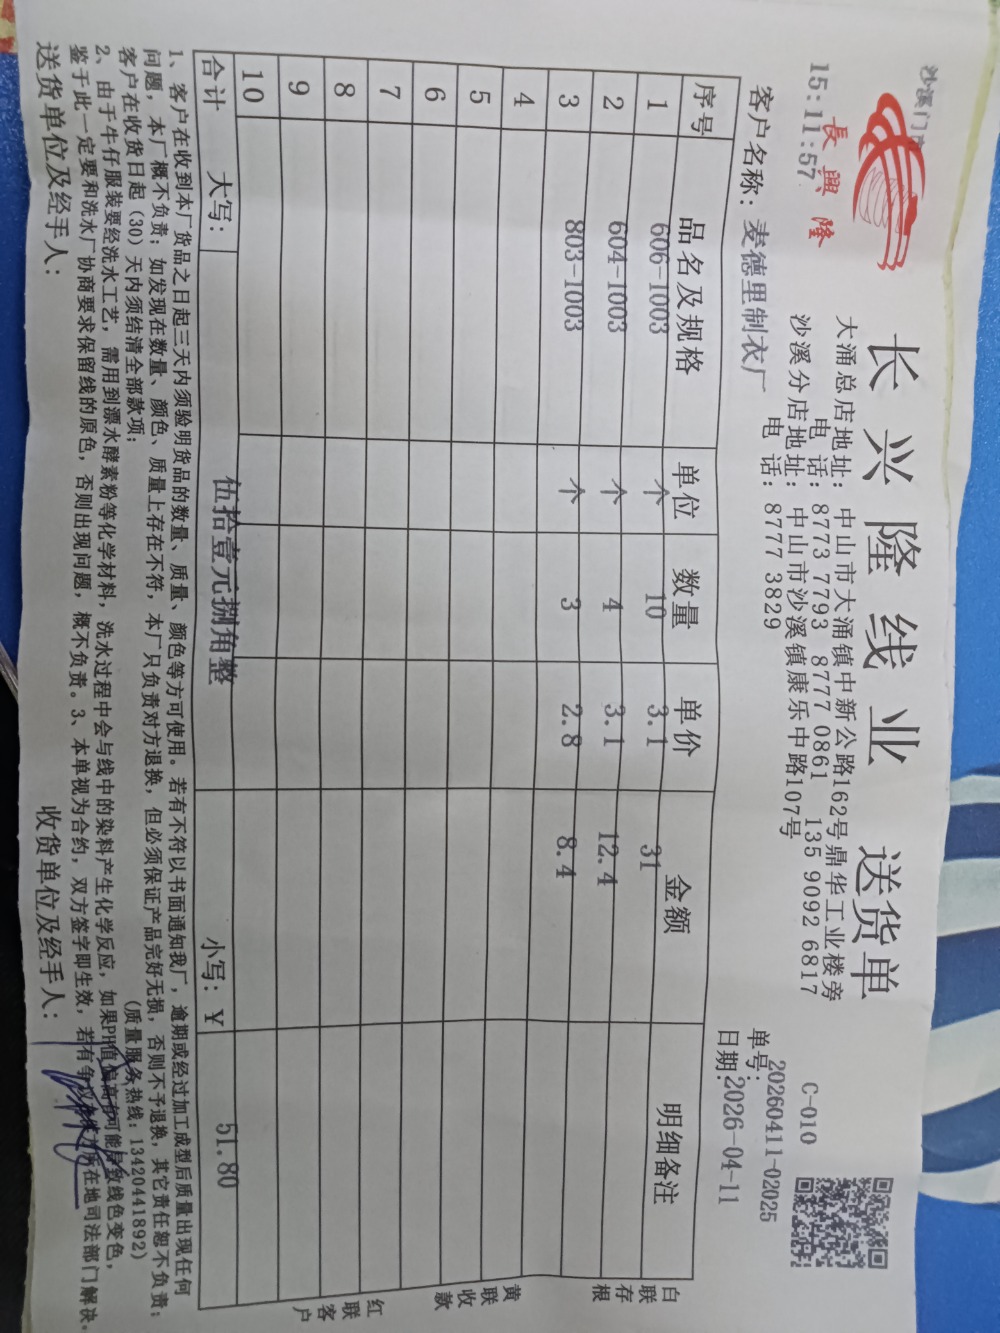 沙溪门
15:11:57
長興隆
长兴隆线业 送货单
大涌总店地址：中山市大涌镇中新公路162号鼎华工业楼旁
电 话：8773 7793 8777 0861 135 9092 6817
沙溪分店地址：中山市沙溪镇康乐中路107号
电 话：8777 3829
C-010
单号：20260411-02025
日期：2026-04-11
客户名称：麦德里制衣厂
序号 品名及规格 单位 数量 单价 金额 明细备注
1 606-1003 个 10 3.1 31
2 604-1003 个 4 3.1 12.4
3 803-1003 个 3 2.8 8.4
4
5
6
7
8
9
10
合计 大写： 伍拾壹元捌角整 小写：￥ 51.80
白联存根
黄联收款
红联客户
1、客户在收到本厂货品之日起三天内须验明货品的数量、质量、颜色等方可使用。若有不符以书面通知我厂，逾期或经过加工成型后质量出现任何
问题，本厂概不负责；如发现在数量、颜色、质量上存在不符，本厂只负责对方退换，但必须保证产品完好无损，否则不予退换，其它责任恕不负责；
客户在收货日起（30）天内须结清全部款项； （质量服务热线：13420441892）
2、由于牛仔服装要经洗水工艺，需用到漂水酵素粉等化学材料，洗水过程中会与线中的染料产生化学反应，如果PH值偏高有可能导致线色变色，
鉴于此一定要和洗水厂协商要求保留线的原色，否则出现问题，概不负责。3、本单视为合约，双方签字即生效，若有争议 所在地司法部门解决。
送货单位及经手人： 收货单位及经手人：